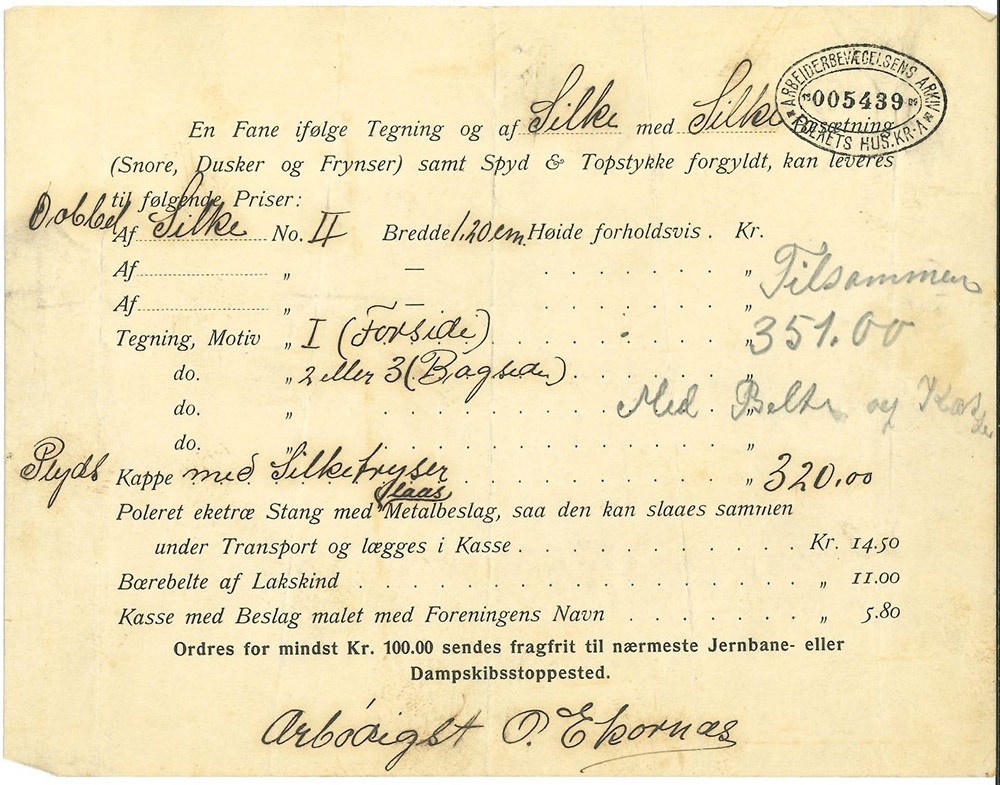 ARBEIDERBEVÆGELSENS ARKIV
005439
FOLKETS HUS. KR-A
En Fane ifølge Tegning og af Silke med Silke Besætning
(Snore, Dusker og Frynser) samt Spyd & Topstykke forgyldt, kan leveres
til følgende Priser:
Dobbel Af Silke No. II Bredde 1.20 cm. Høide forholdsvis . Kr.
Af „ — „ Tilsammen
Af „ — „
Tegning, Motiv „ I (Forside) „ 351.00
do. „ 2 eller 3 (Bagside) „
do. „ „ Med Belte og
do. „ „
Plyds Kappe med Silkefryser „ 320.00
Slaas
Poleret eketræ Stang med Metalbeslag, saa den kan slaaes sammen
under Transport og lægges i Kasse Kr. 14.50
Bærebelte af Lakskind „ 11.00
Kasse med Beslag malet med Foreningens Navn „ 5.80
Ordres for mindst Kr. 100.00 sendes fragfrit til nærmeste Jernbane- eller
Dampskibsstoppested.
Arbødigst O. Ekornæs